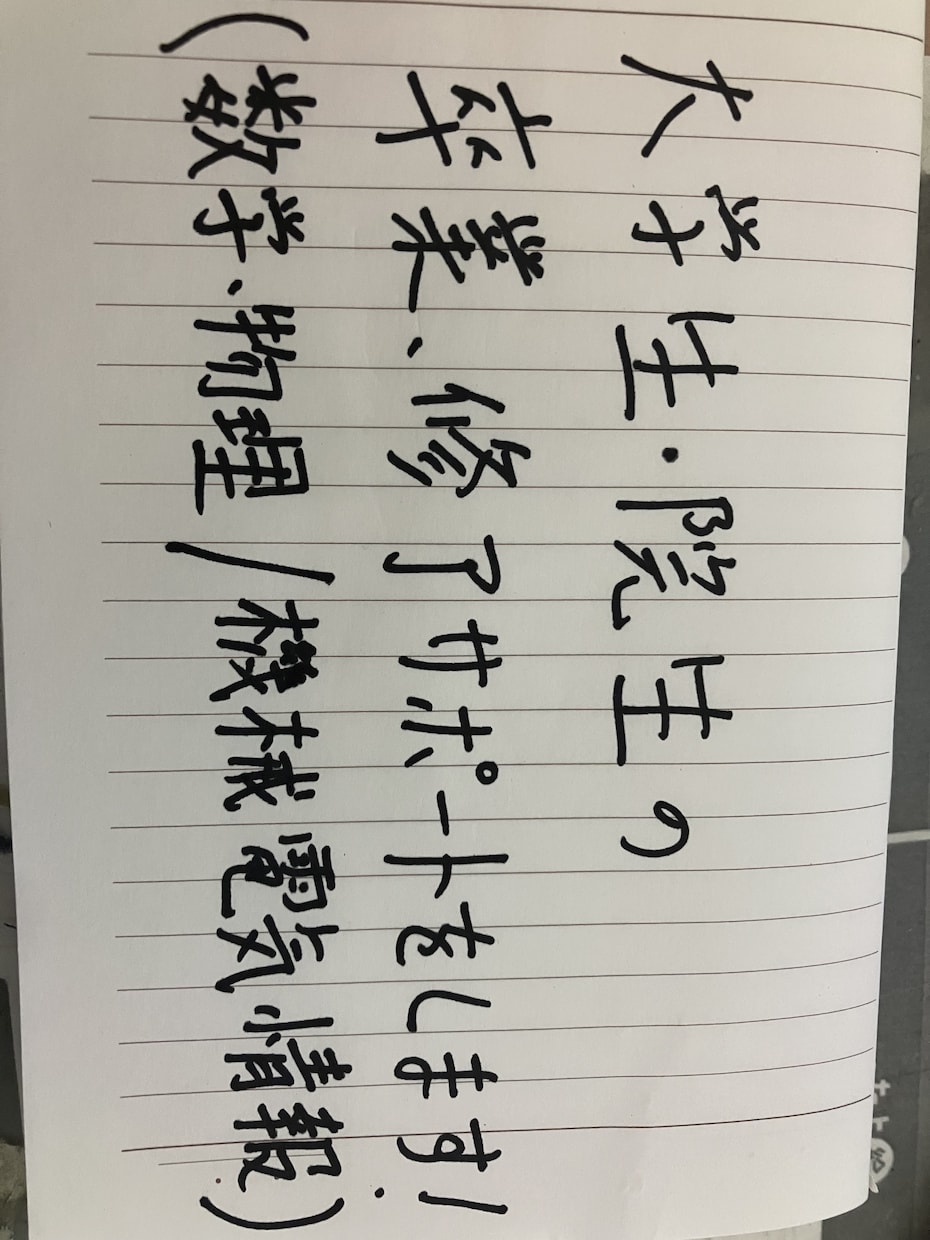 大学生・院生の
卒業、修了サポートをします!
(数学、物理/機械電気情報)